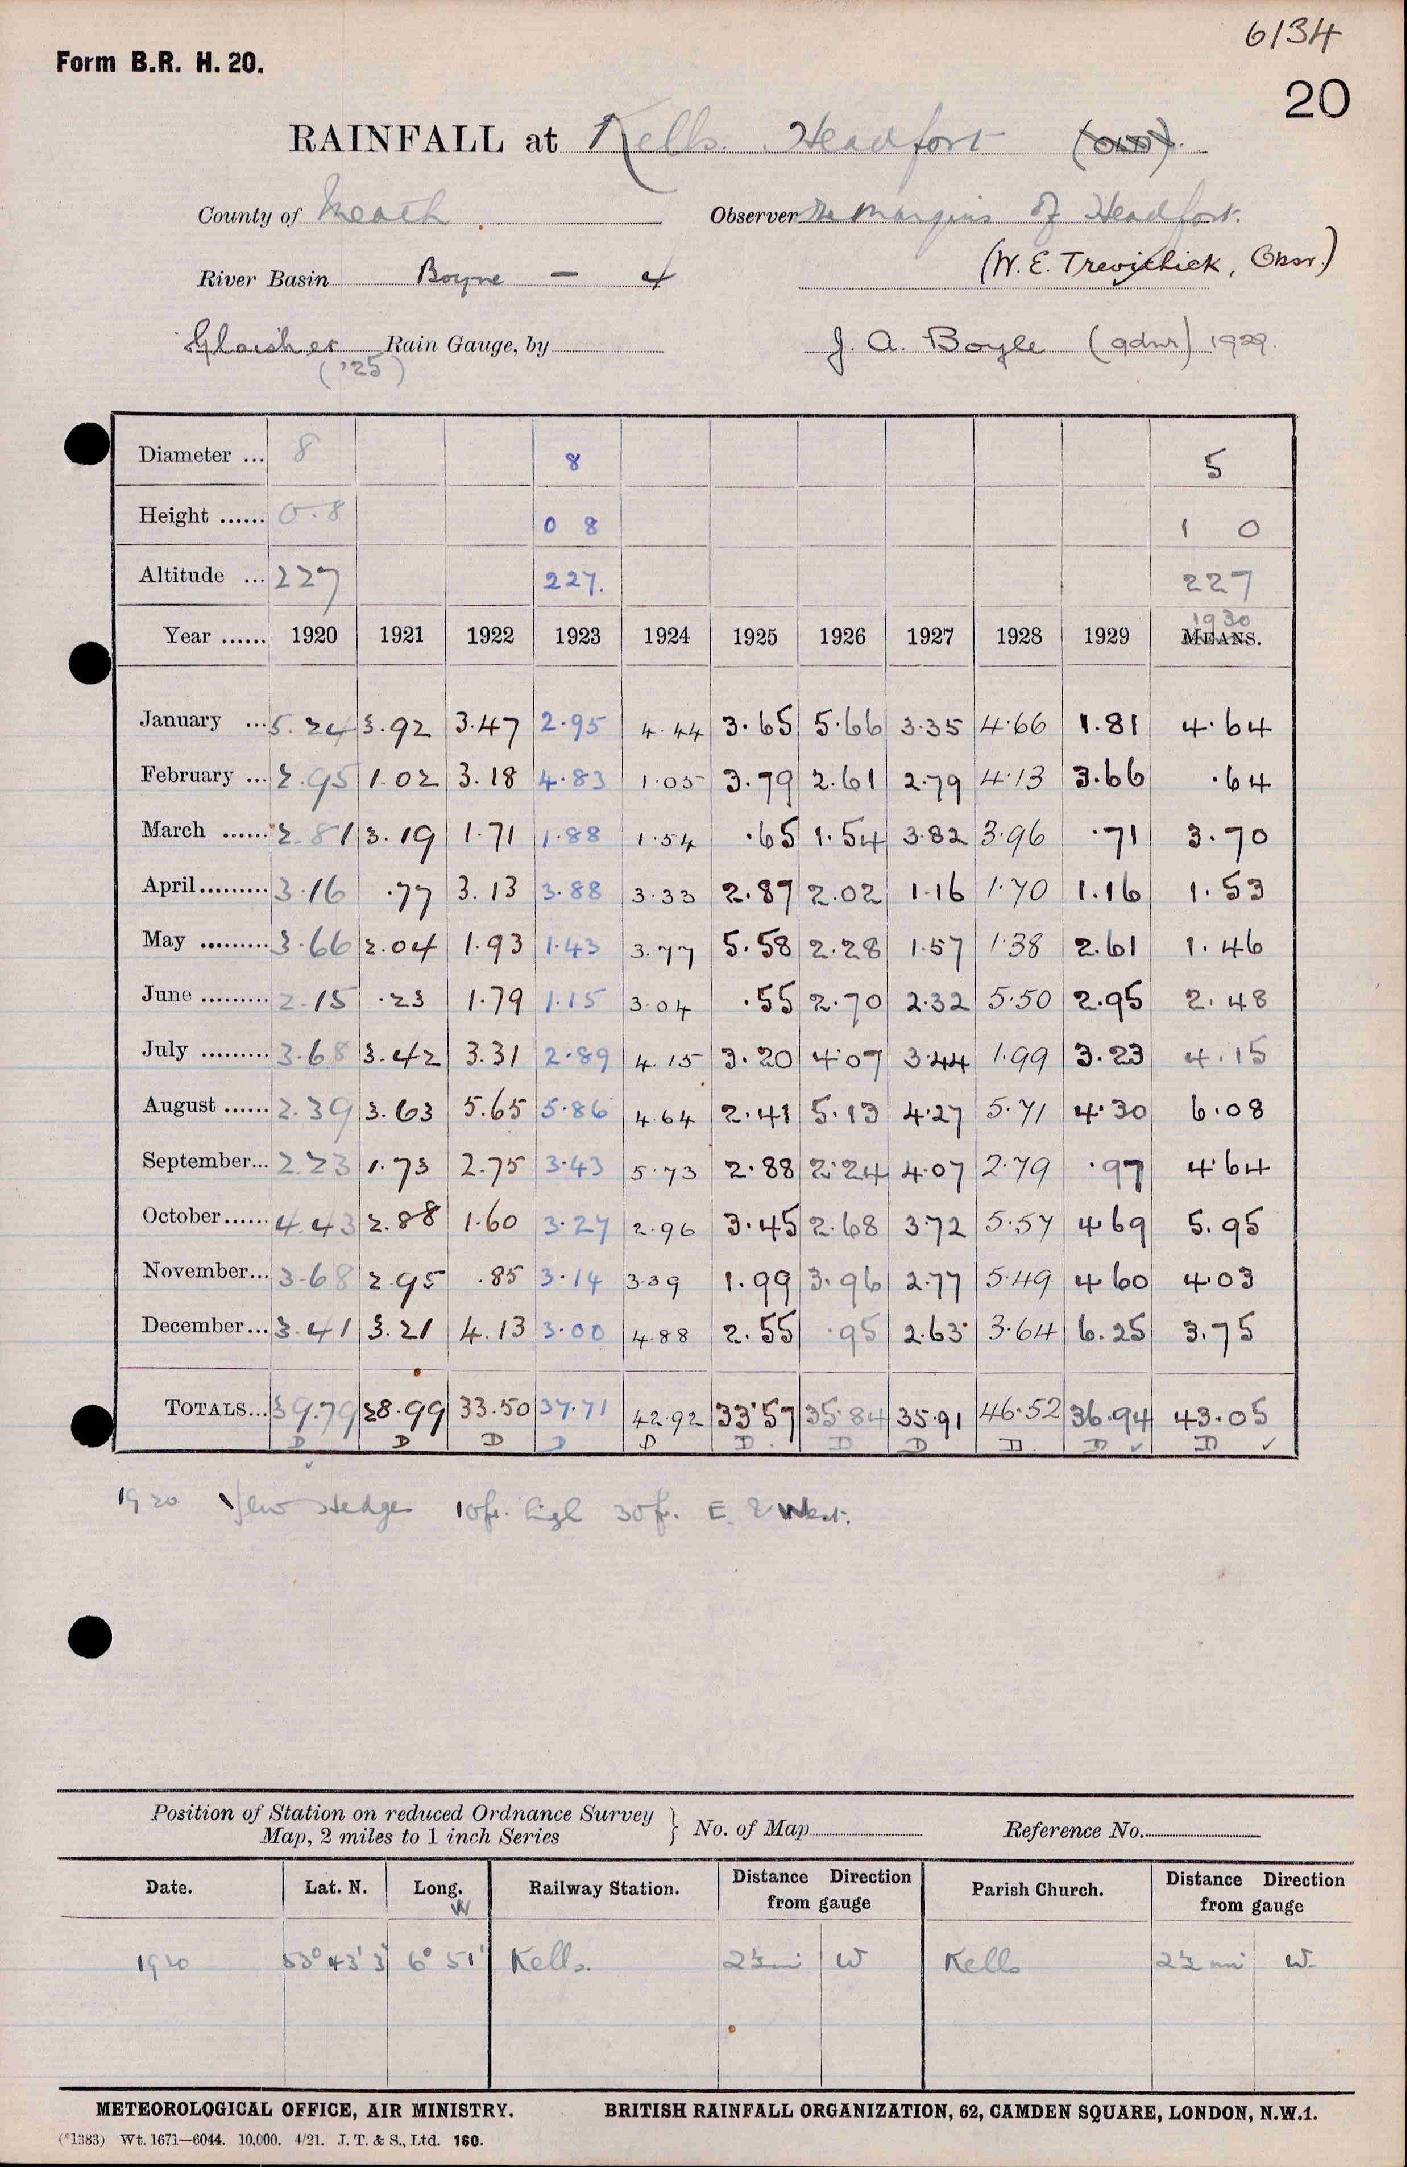 6134
Form B.R. H. 20.
20
RAINFALL at Kells. Headfort (Old).
County of Meath Observer The Marquis of Headfort.
River Basin Boyne — 4 (W. E. Trevithick, Obsr.)
Glaisher Rain Gauge, by J. A. Boyle (gdnr) 1929.
('25)
Diameter ... 8 8 5
Height ...... 0.8 0 8 1 0
Altitude ... 227 227. 227
1930
Year ...... 1920 1921 1922 1923 1924 1925 1926 1927 1928 1929 MEANS.
January ... 5.24 3.92 3.47 2.95 4.44 3.65 5.66 3.35 4.66 1.81 4.64
February ... 2.95 1.02 3.18 4.83 1.05 3.79 2.61 2.79 4.13 3.66 .64
March ...... 2.81 3.19 1.71 1.88 1.54 .65 1.54 3.82 3.96 .71 3.70
April......... 3.16 .77 3.13 3.88 3.33 2.87 2.02 1.16 1.70 1.16 1.53
May ......... 3.66 2.04 1.93 1.43 3.77 5.58 2.28 1.57 1.38 2.61 1.46
June ......... 2.15 .23 1.79 1.15 3.04 .55 2.70 2.32 5.50 2.95 2.48
July ......... 3.68 3.42 3.31 2.89 4.15 3.20 4.07 3.44 1.99 3.23 4.15
August ...... 2.39 3.63 5.65 5.86 4.64 2.41 5.13 4.27 5.71 4.30 6.08
September... 2.23 1.73 2.75 3.43 5.73 2.88 2.24 4.07 2.79 .97 4.64
October...... 4.43 2.88 1.60 3.27 2.96 3.45 2.68 3.72 5.57 4.69 5.95
November... 3.68 2.95 .85 3.14 3.39 1.99 3.96 2.77 5.49 4.60 4.03
December... 3.41 3.21 4.13 3.00 4.88 2.55 .95 2.63 3.64 6.25 3.75
TOTALS... 39.79 28.99 33.50 37.71 42.92 33.57 35.84 35.91 46.52 36.94 43.05
D D D D D D D D D D ✓ D ✓
1920 Yew Hedges 10ft. high 30ft. E. & West.
Position of Station on reduced Ordnance Survey Map, 2 miles to 1 inch Series } No. of Map Reference No.
Date. Lat. N. Long. W Railway Station. Distance Direction from gauge Parish Church. Distance Direction from gauge
1920 53° 43' 3" 6° 51' Kells. 2½ mi W Kells 2½ mi W.
METEOROLOGICAL OFFICE, AIR MINISTRY. BRITISH RAINFALL ORGANIZATION, 62, CAMDEN SQUARE, LONDON, N.W.1.
(*1383) Wt. 1671—6044. 10,000. 4/21. J. T. & S., Ltd. 160.